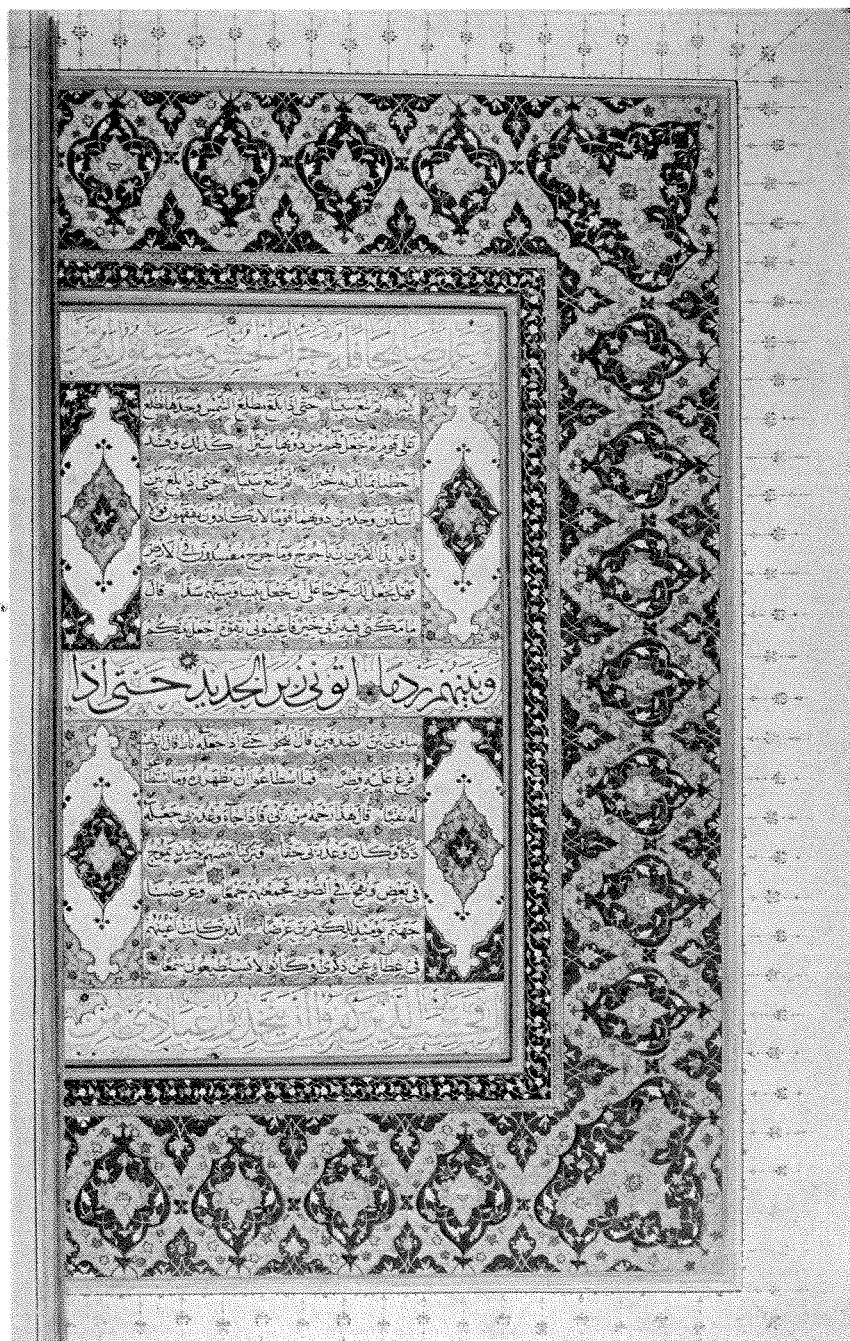 وعمل صالحا فله جزاء الحسنى وسنقول له من
يسرا ثم اتبع سببا حتى اذا بلغ مطلع الشمس وجدها تطلع
على قوم لم نجعل لهم من دونها سترا كذلك وقد
احطنا بما لديه خبرا ثم اتبع سببا حتى اذا بلغ بين
السدين وجد من دونهما قوما لا يكادون يفقهون قولا
قالوا يا ذا القرنين ان ياجوج وماجوج مفسدون في الارض
فهل نجعل لك خرجا على ان تجعل بيننا وبينهم سدا قال
ما مكني فيه ربي خير فاعينوني بقوة اجعل بينكم
وبينهم ردما اتوني زبر الحديد حتى اذا
ساوى بين الصدفين قال انفخوا حتى اذا جعله نارا قال اتوني
افرغ عليه قطرا فما اسطاعوا ان يظهروه وما استطاعوا
له نقبا قال هذا رحمة من ربي فاذا جاء وعد ربي جعله
دكاء وكان وعد ربي حقا وتركنا بعضهم يومئذ يموج
في بعض ونفخ في الصور فجمعناهم جمعا وعرضنا
جهنم يومئذ للكفرين عرضا الذين كانت اعينهم
في غطاء عن ذكري وكانوا لا يستطيعون سمعا
افحسب الذين كفروا ان يتخذوا عبادي من